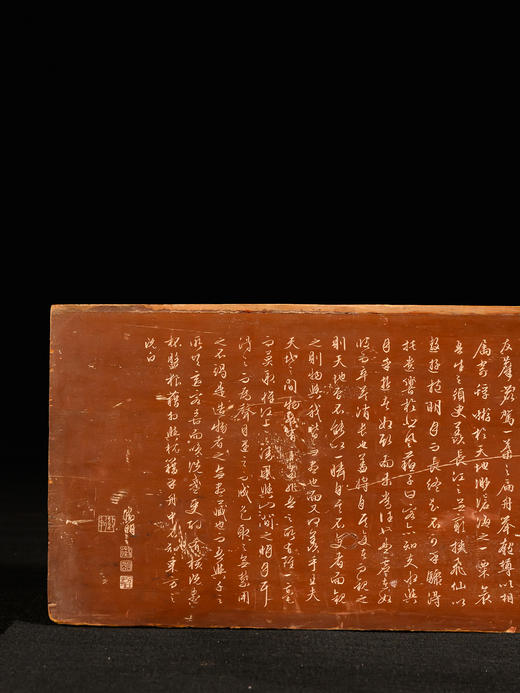 友麋鹿駕一葉之扁舟舉匏樽以相
屬寄蜉蝣於天地渺滄海之一粟哀
吾生之須臾羨長江之無窮挾飛仙以
遨遊抱明月而長終知不可乎驟得
托遺響於悲風蘇子曰客亦知夫水與
月乎逝者如斯而未嘗往也盈虛者如
彼而卒莫消長也蓋將自其變者而觀之
則天地曾不能以一瞬自其不變者而觀
之則物與我皆無盡也而又何羨乎且夫
天地之間物各有主苟非吾之所有雖一毫
而莫取惟江上之清風與山間之明月耳
得之而為聲目遇之而成色取之無禁用
之不竭是造物者之無盡藏也而吾與子之
所共適客喜而笑洗盞更酌肴核既盡
杯盤狼藉相與枕藉乎舟中不知東方之
既白